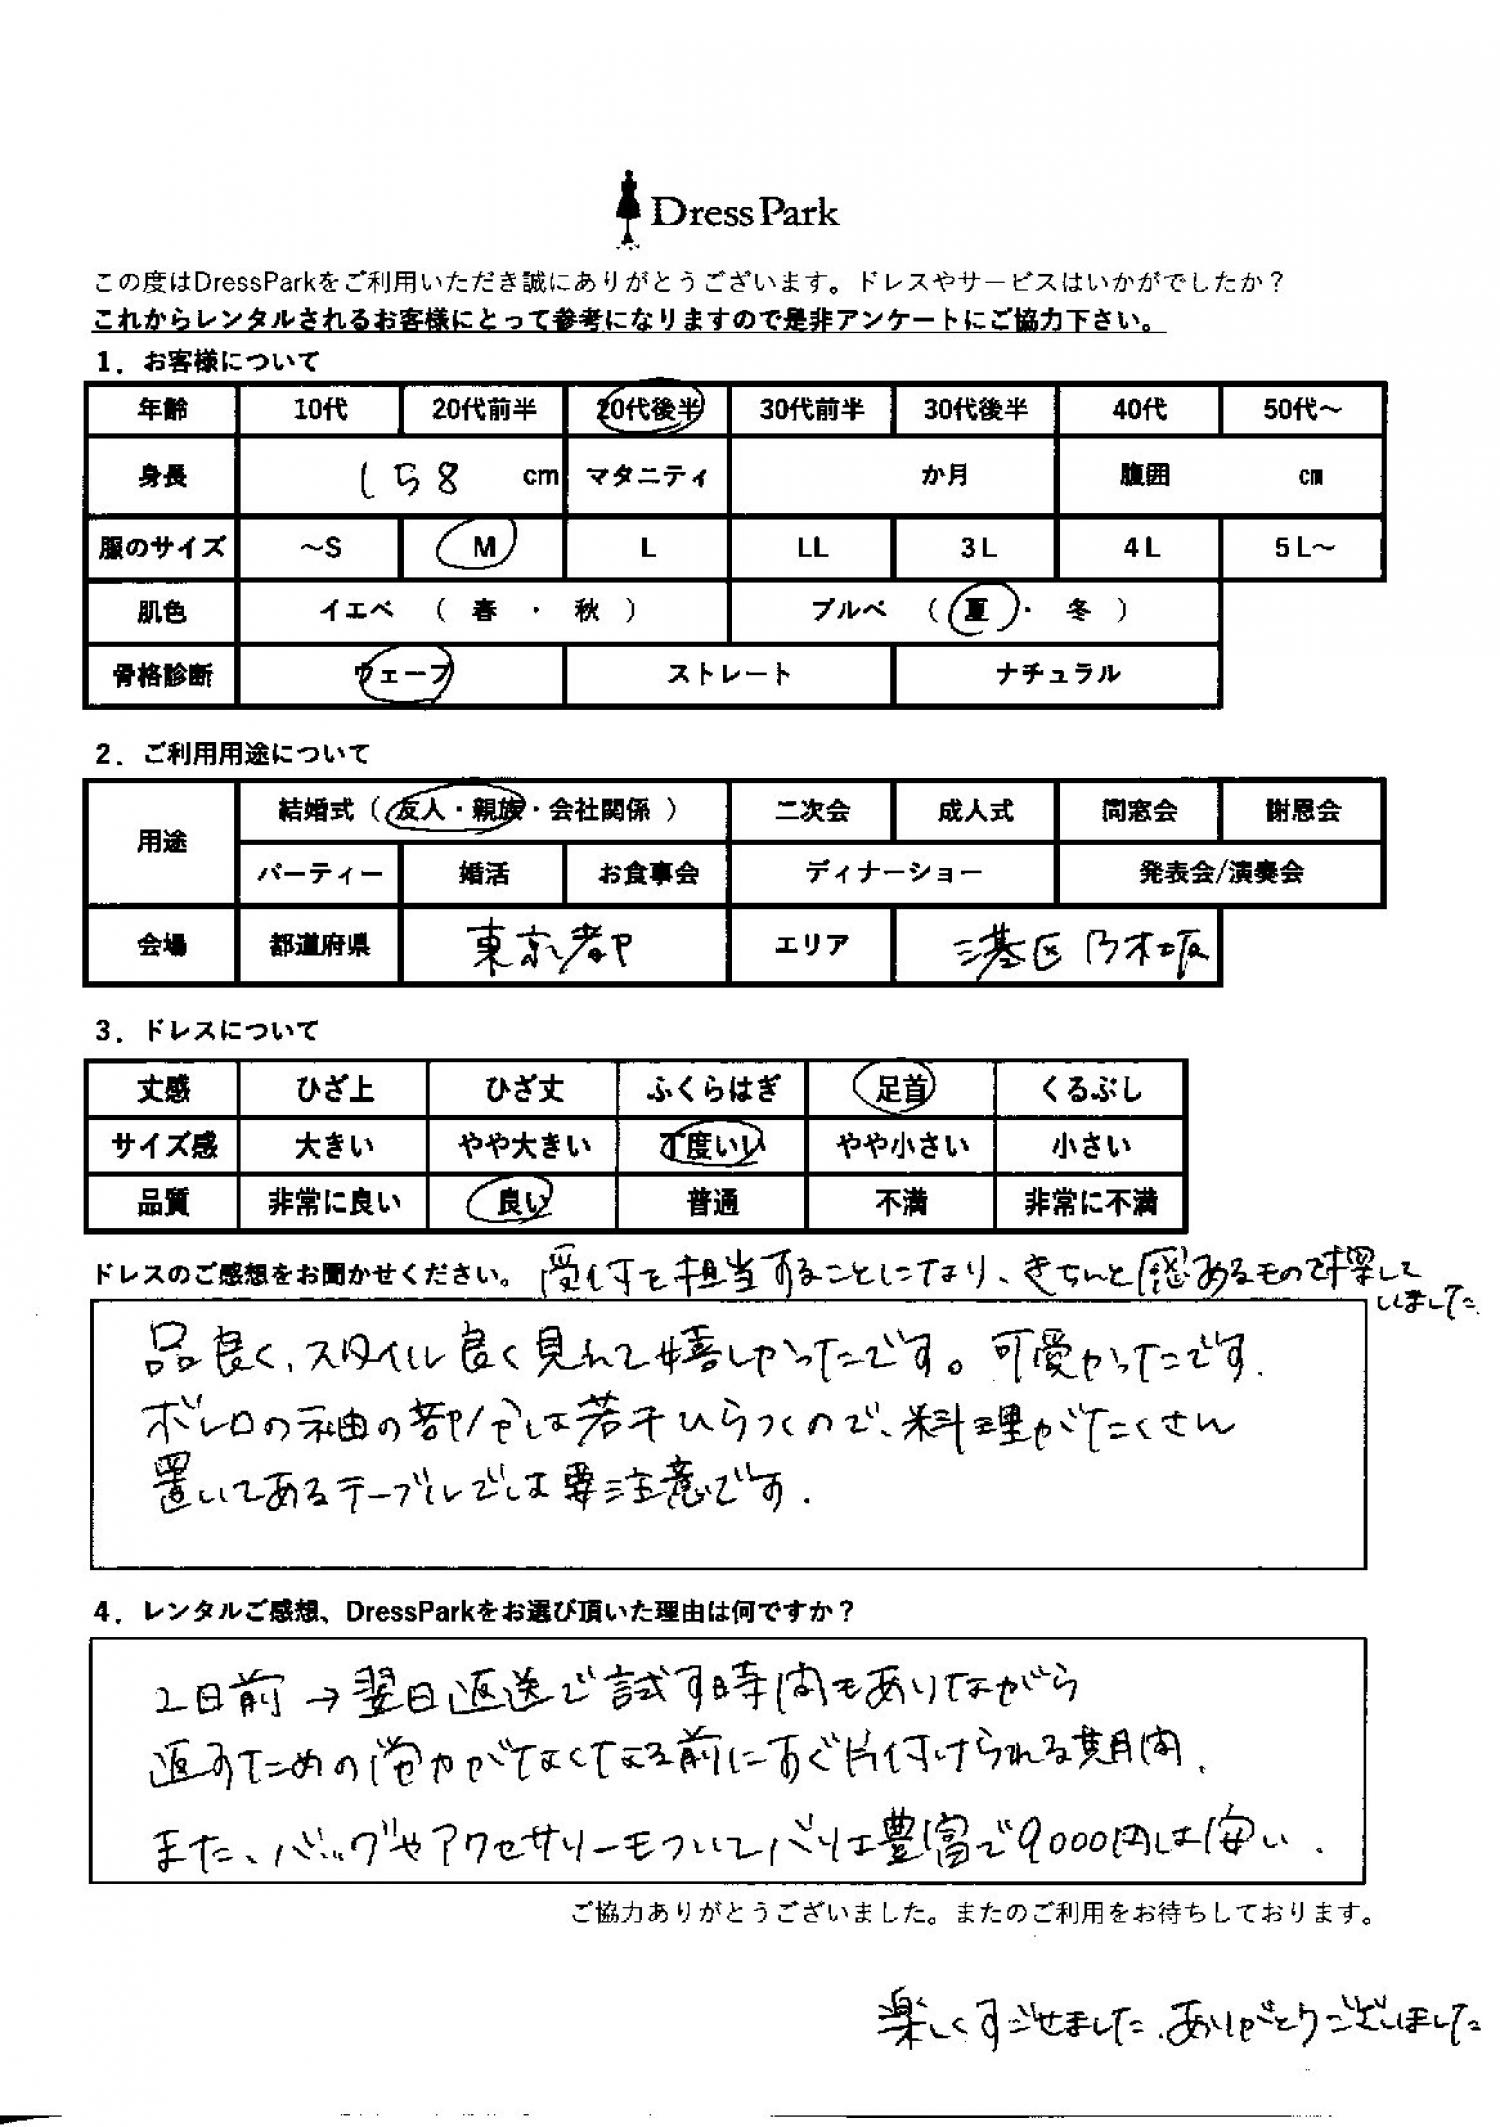 DressPark
この度はDressParkをご利用いただき誠にありがとうございます。ドレスやサービスはいかがでしたか？
これからレンタルされるお客様にとって参考になりますので是非アンケートにご協力下さい。
1．お客様について
年齢 10代 20代前半 20代後半 30代前半 30代後半 40代 50代～
身長 158 cm マタニティ か月 腹囲 cm
服のサイズ ～S M L LL 3L 4L 5L～
肌色 イエベ （ 春 ・ 秋 ） ブルベ （ 夏 ・ 冬 ）
骨格診断 ウェーブ ストレート ナチュラル
2．ご利用用途について
用途 結婚式（ 友人・親族・会社関係 ） 二次会 成人式 同窓会 謝恩会
パーティー 婚活 お食事会 ディナーショー 発表会/演奏会
会場 都道府県 東京都 エリア 港区 乃木坂
3．ドレスについて
丈感 ひざ上 ひざ丈 ふくらはぎ 足首 くるぶし
サイズ感 大きい やや大きい 丁度いい やや小さい 小さい
品質 非常に良い 良い 普通 不満 非常に不満
ドレスのご感想をお聞かせください。 受付を担当することになり、きちんと感あるもので探して
いました
品良く、スタイル良く見れて嬉しかったです。可愛かったです.
ボレロの袖の部分は若干ひらつくので、料理がたくさん
置いてあるテーブルでは要注意です.
4．レンタルご感想、DressParkをお選び頂いた理由は何ですか？
2日前→翌日返送で試す時間もありながら
返すための労力がなくなる前にすぐ片付けられる期間.
また、バッグやアクセサリーもついてバリは豊富で9000円は安い.
ご協力ありがとうございました。またのご利用をお待ちしております。
楽しくすごせました.ありがとうございました